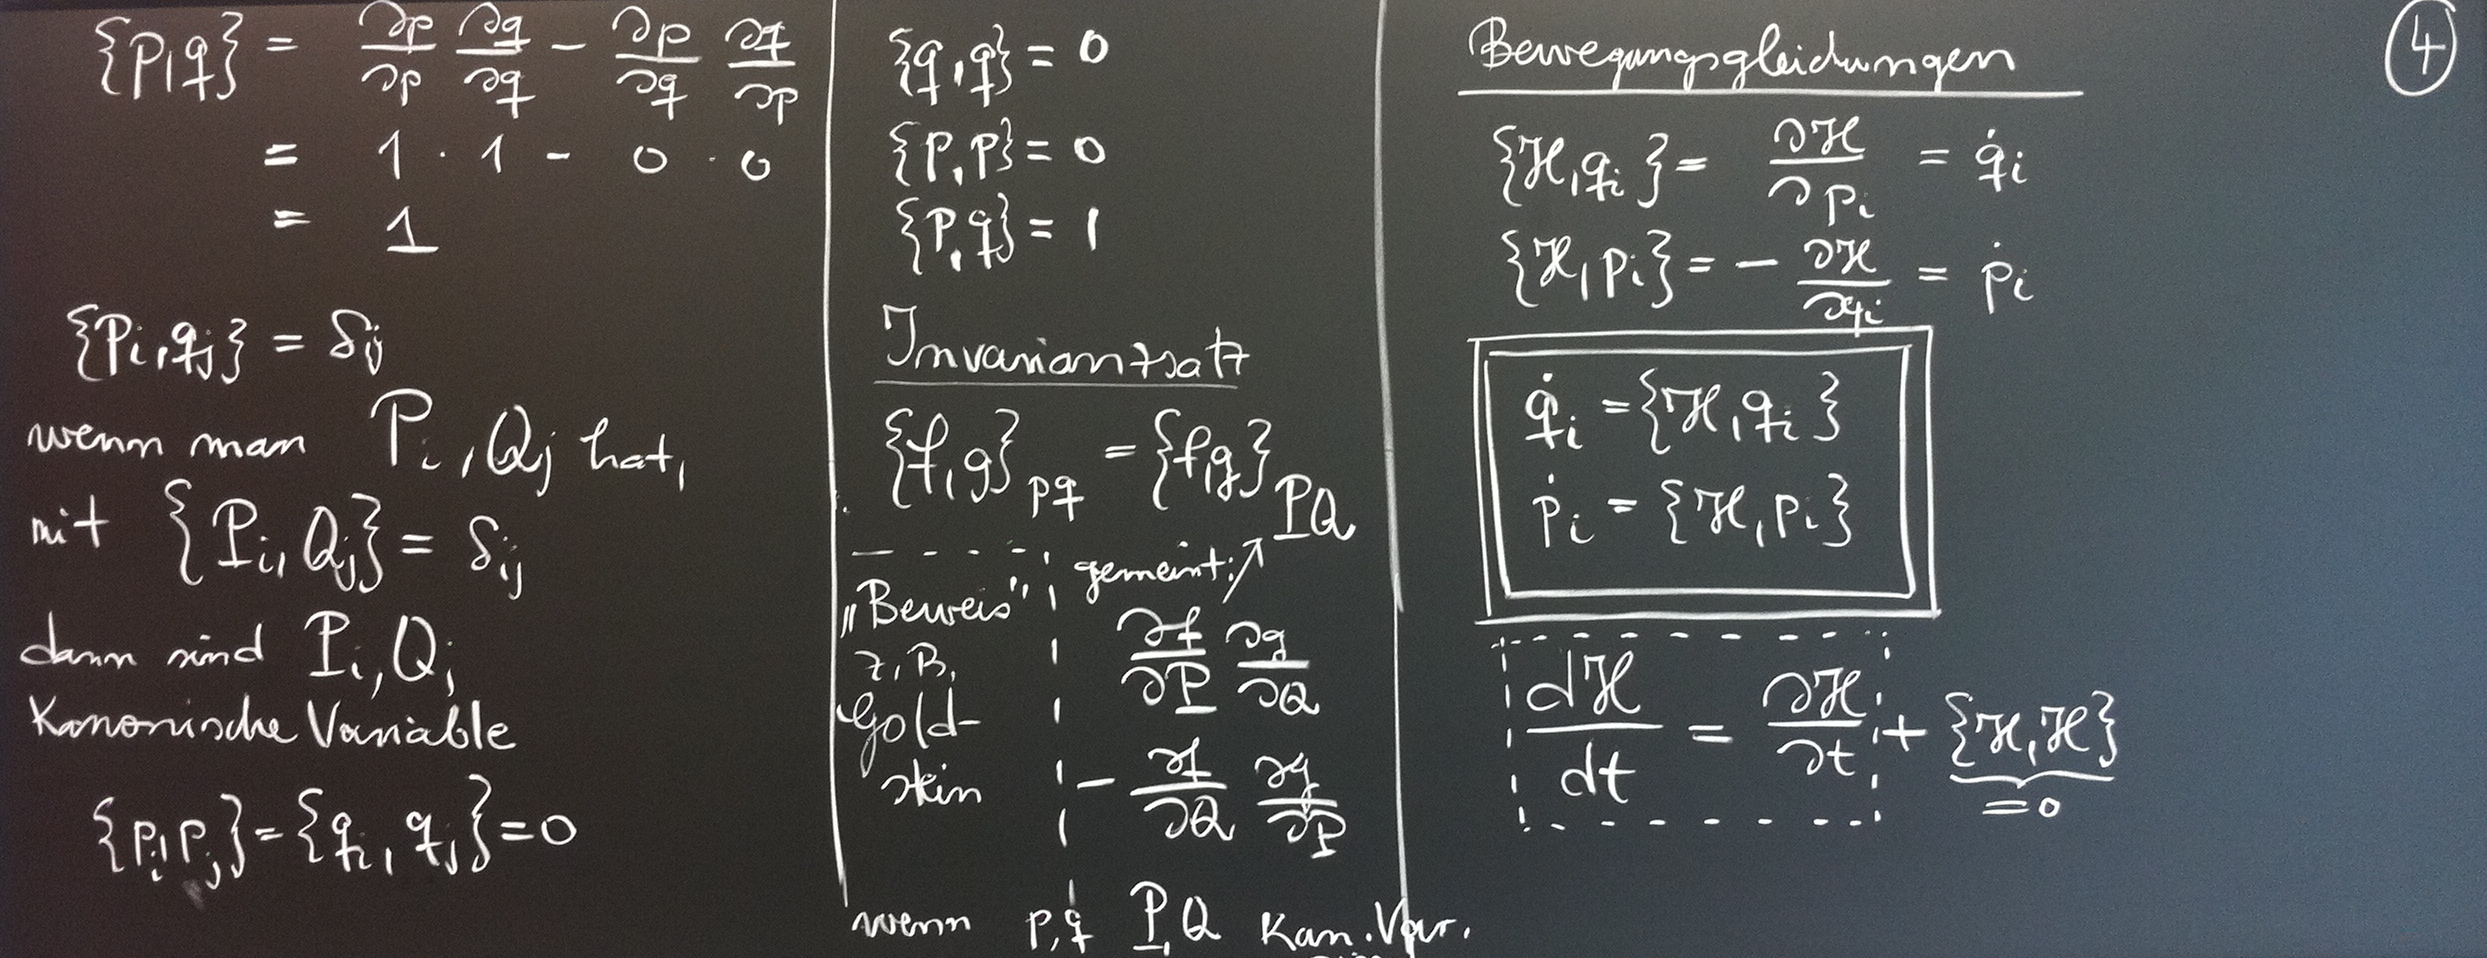 {p,q} = ∂p/∂p ∂q/∂q − ∂p/∂q ∂q/∂p
= 1 · 1 − 0 · 0
= 1
{p_i, q_j} = δ_ij
wenn man P_i, Q_j hat,
mit {P_i, Q_j} = δ_ij
dann sind P_i, Q_j
Kanonische Variable
{p_i, p_j} = {q_i, q_j} = 0
{q, q} = 0
{p, p} = 0
{p, q} = 1
Invariantzsatz
{f, g}_pq = {f, g}_PQ
„Beweis"
z.B.
Gold-
stein
gemeint: ↗
∂f/∂P ∂g/∂Q
− ∂f/∂Q ∂g/∂P
wenn p, q P, Q Kan. Var.
④
Bewegungsgleichungen
{H, q_i} = ∂H/∂p_i = q̇_i
{H, p_i} = − ∂H/∂q_i = ṗ_i
q̇_i = {H, q_i}
ṗ_i = {H, p_i}
dH/dt = ∂H/∂t + {H, H}
= 0